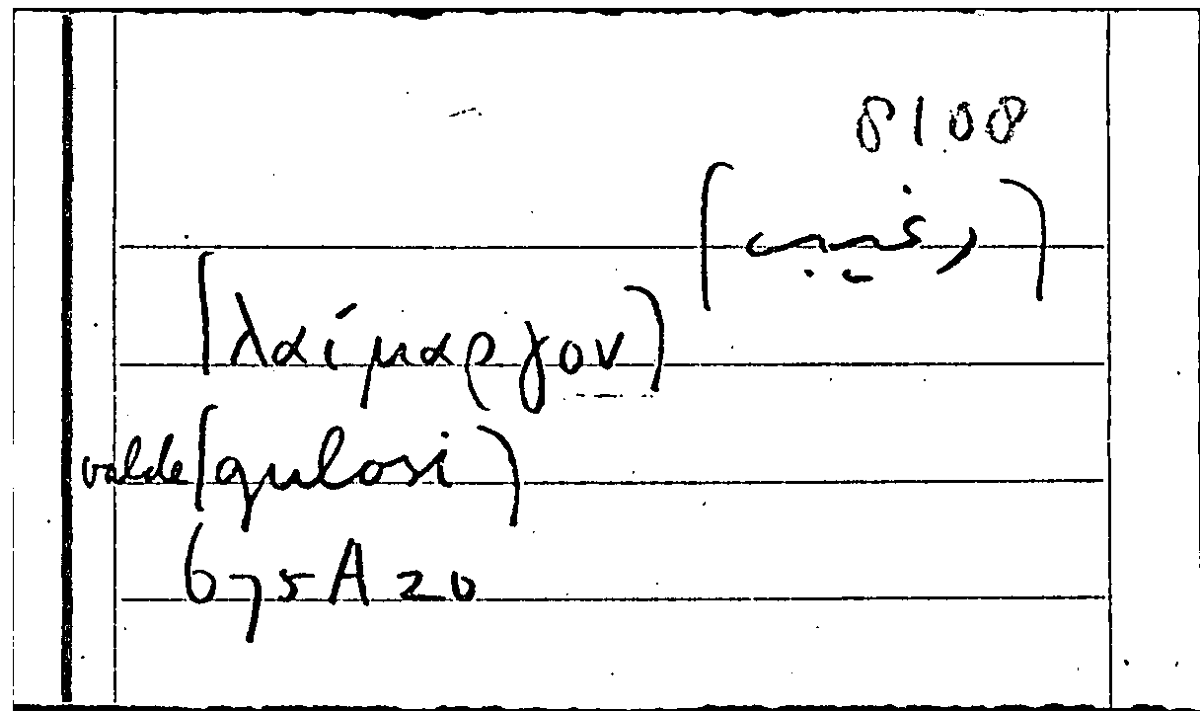 8108
(رغيب)
(λαίμαργον)
valde (gulosi)
675A20